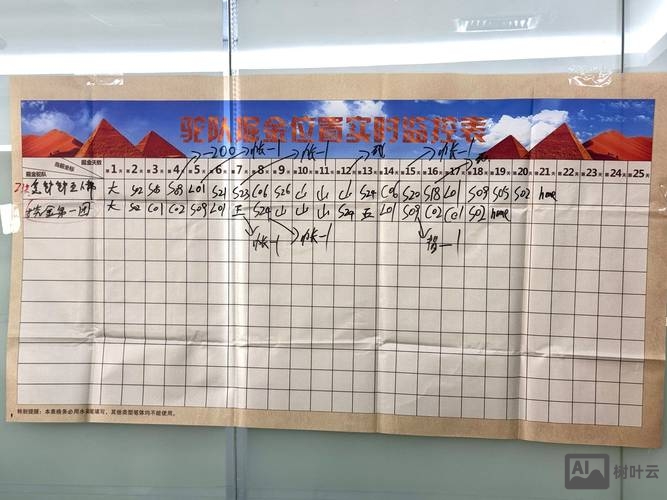 驼队掘金位置实时监控表
-200 帐-1 帐-1 帐-1
掘金天数
当前坐标
掘金驼队
第1天 第2天 第3天 第4天 第5天 第6天 第7天 第8天 第9天 第10天 第11天 第12天 第13天 第14天 第15天 第16天 第17天 第18天 第19天 第20天 第21天 第22天 第23天 第24天 第25天
大 S02 S05 S09 L01 S21 S23 C06 S26 山 山 山 S24 C06 S20 S18 L01 S09 S05 S02 home
掘金第一团 大 S02 C01 C02 S09 L01 王 S24 山 山 山 S24 王 L01 S09 C02 C01 S02 home
帐-1 帐-1 -1
特别提醒:本表格务必用水彩笔填写,其他类型笔体均不能使用。
AI 树叶云